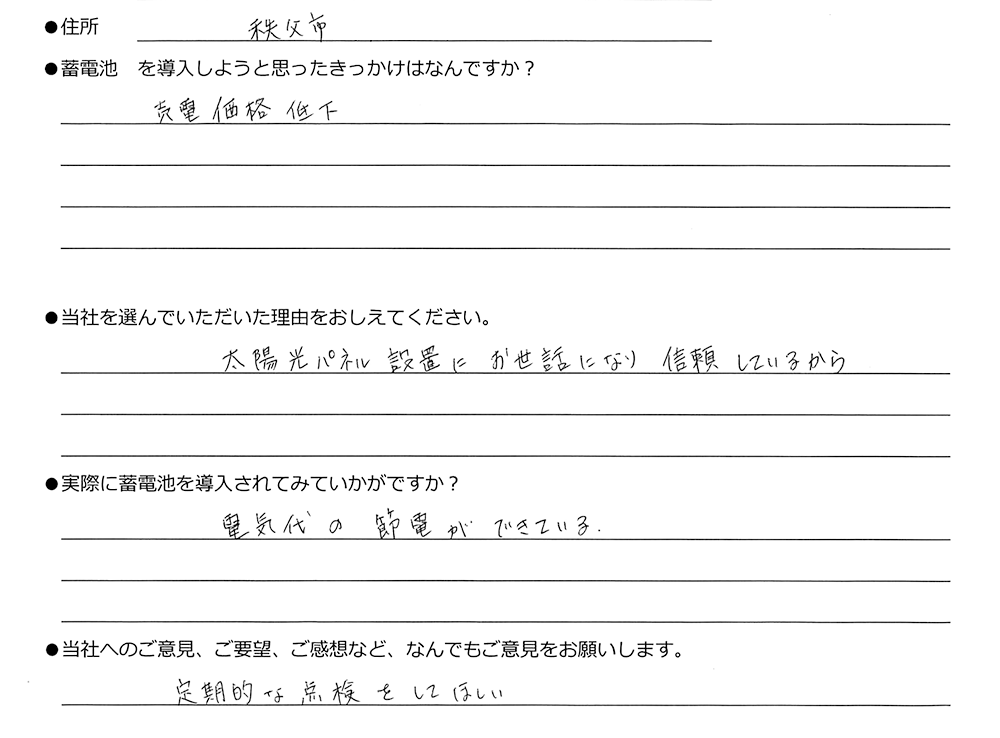 ●住所 秩父市
●蓄電池 を導入しようと思ったきっかけはなんですか？
売電価格低下
●当社を選んでいただいた理由をおしえてください。
太陽光パネル設置にお世話になり信頼しているから
●実際に蓄電池を導入されてみていかがですか？
電気代の節電ができている.
●当社へのご意見、ご要望、ご感想など、なんでもご意見をお願いします。
定期的な点検をしてほしい